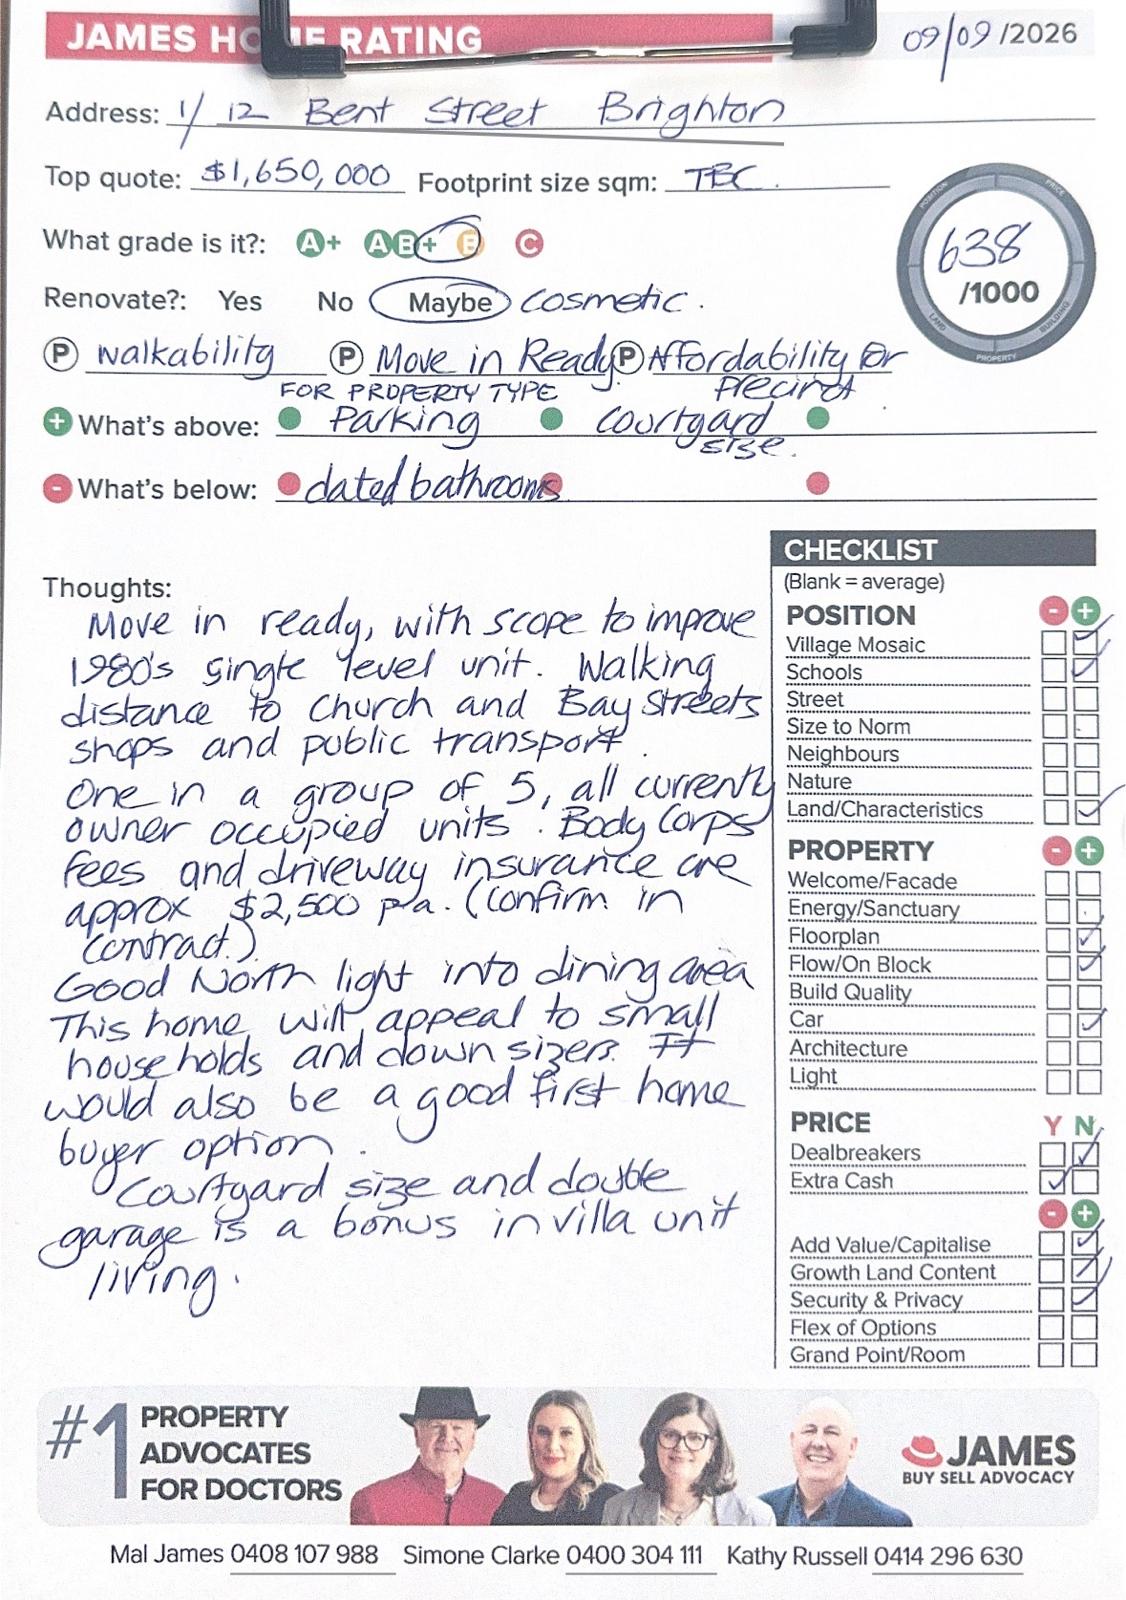 JAMES HOME RATING
09/09/2026
Address: 1/12 Bent Street Brighton
Top quote: $1,650,000 Footprint size sqm: TBC.
What grade is it?: A+ A B+ B C
638
/1000
POSITION PRICE LAND BUILDING PROPERTY
Renovate?: Yes No Maybe cosmetic.
P walkability P Move in Ready. P Affordability for
precinct
FOR PROPERTY TYPE
+ What's above: Parking Courtyard
size.
- What's below: dated bathrooms
Thoughts:
Move in ready, with scope to improve
1980's single level unit. Walking
distance to Church and Bay Streets
shops and public transport.
One in a group of 5, all currently
owner occupied units. Body Corps
fees and driveway insurance are
approx $2,500 p.a. (Confirm in
contract.)
Good North light into dining area
This home will appeal to small
households and down sizers. It
would also be a good first home
buyer option.
Courtyard size and double
garage is a bonus in villa unit
living.
CHECKLIST
(Blank = average)
POSITION - +
Village Mosaic
Schools
Street
Size to Norm
Neighbours
Nature
Land/Characteristics
PROPERTY - +
Welcome/Facade
Energy/Sanctuary
Floorplan
Flow/On Block
Build Quality
Car
Architecture
Light
PRICE Y N
Dealbreakers
Extra Cash
- +
Add Value/Capitalise
Growth Land Content
Security & Privacy
Flex of Options
Grand Point/Room
#1 PROPERTY
ADVOCATES
FOR DOCTORS
JAMES
BUY SELL ADVOCACY
Mal James 0408 107 988 Simone Clarke 0400 304 111 Kathy Russell 0414 296 630